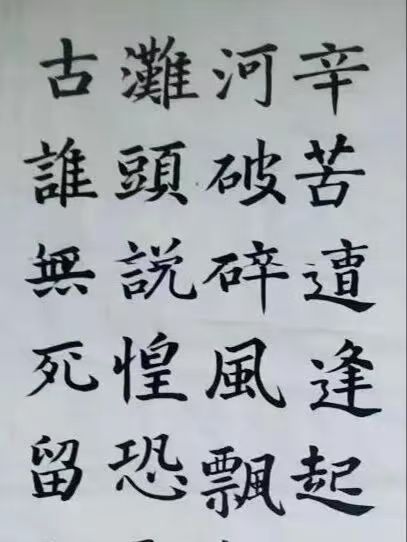 辛苦遭逢起
河破碎風飄
灘頭説惶恐
古誰無死留